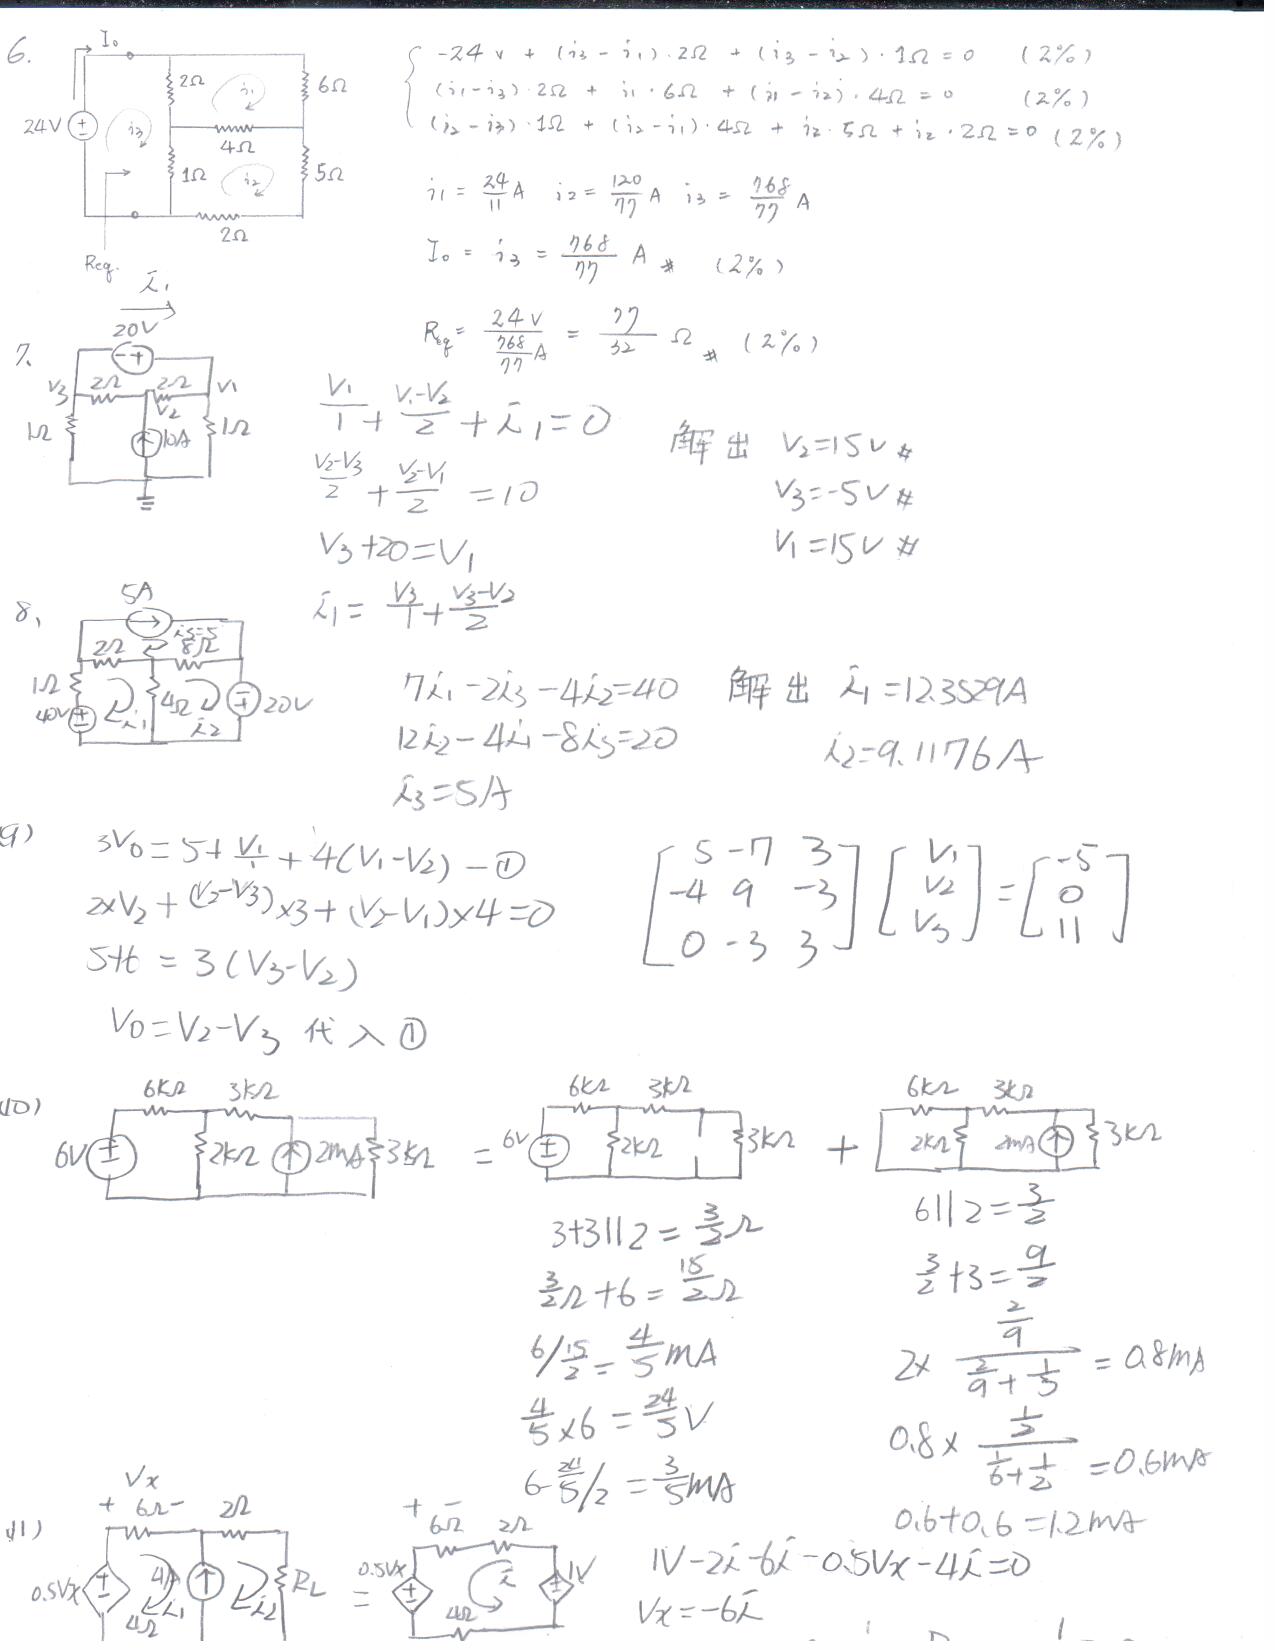 6.
I₀
2Ω
i₁
6Ω
24V
i₃
4Ω
1Ω
i₂
5Ω
2Ω
Req.
-24 v + (i₃ - i₁)·2Ω + (i₃ - i₂)·1Ω = 0 (2%)
(i₁-i₃)·2Ω + i₁·6Ω + (i₁ - i₂)·4Ω = 0 (2%)
(i₂-i₃)·1Ω + (i₂-i₁)·4Ω + i₂·5Ω + i₂·2Ω = 0 (2%)
i₁ = 24/11 A i₂ = 120/77 A i₃ = 768/77 A
I₀ = i₃ = 768/77 A # (2%)
Req = 24V/(768/77 A) = 77/32 Ω # (2%)
7.
i₁
20V
- +
V₃ 2Ω 2Ω V₁
V₂
1Ω 10A 1Ω
V₁/1 + (V₁-V₂)/2 + i₁ = 0
(V₂-V₃)/2 + (V₂-V₁)/2 = 10
V₃+20=V₁
i₁ = V₃/1 + (V₃-V₂)/2
解出 V₂=15V #
V₃=-5V #
V₁=15V #
8.
5A
i₃=5
2Ω 8Ω
1Ω 4Ω 20V
40V i₁ i₂
7i₁-2i₃-4i₂=40
12i₂-4i₁-8i₃=20
i₃=5A
解出 i₁=12.3529A
i₂=9.1176A
9)
3V₀=5+V₁/1+4(V₁-V₂) -①
2×V₂+(V₂-V₃)×3+(V₂-V₁)×4=0
5+6 = 3(V₃-V₂)
V₀=V₂-V₃ 代入①
[5 -7 3] [V₁] = [-5]
[-4 9 -3] [V₂] [0]
[0 -3 3] [V₃] [11]
10)
6kΩ 3kΩ
6V 2kΩ 2mA 3kΩ
=
6kΩ 3kΩ
6V 2kΩ 3kΩ
+
6kΩ 3kΩ
2kΩ 2mA 3kΩ
3+3||2 = 3/2 Ω
3/2 Ω+6 = 15/2 Ω
6/(15/2) = 4/5 mA
4/5×6 = 24/5 V
6-24/5/2 = 3/5 mA
6||2 = 3/2
3/2+3 = 9/2
2× (2/9)/(2/9+1/3) = 0.8mA
0.8× (1/2)/(1/6+1/2) = 0.6mA
0.6+0.6=1.2mA
11)
Vx
+ 6Ω - 2Ω
0.5Vx 4A i₁ i₂ RL
4Ω
=
+ 6Ω - 2Ω
0.5Vx i 1V
4Ω
1V-2i-6i-0.5Vx-4i=0
Vx=-6i